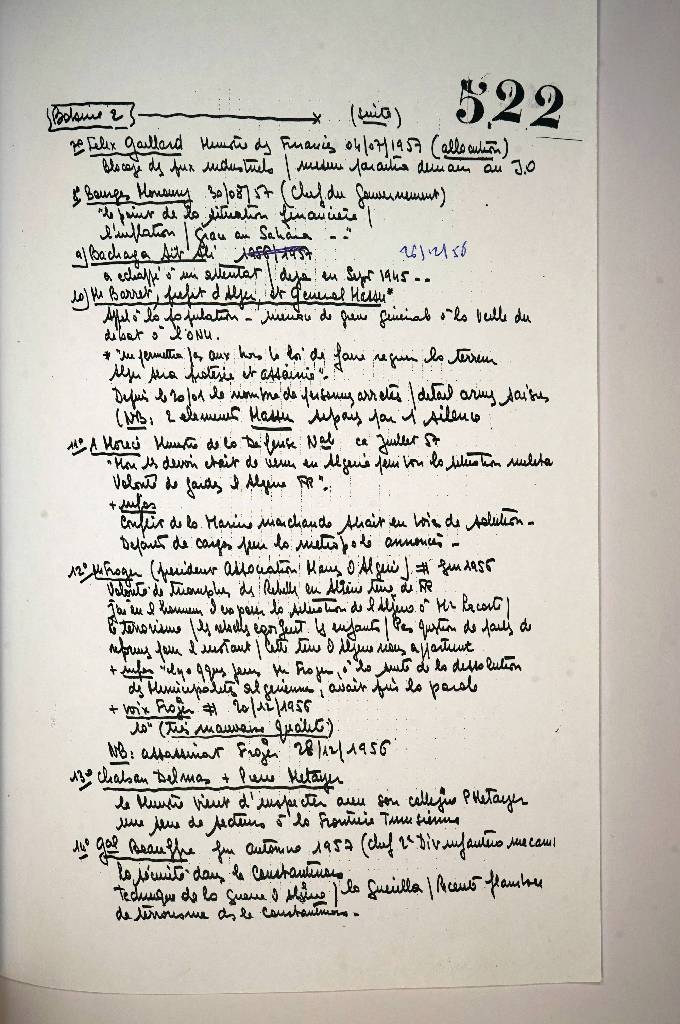 522
Bobine 2 (suite)
7° Felix Gaillard Ministre des Finances 04/07/1957 (allocution)
Blocage des prix industriels / mesure paraitra demain au J.O
8° Bourges Monoury 30/08/57 (Chef du Gouvernement)
"le point de la situation financière /
l'inflation / Grace au Sahara - -"
9) Bachaga Aït Ali 1956/1957 26/12/56
a echappé à un attentat / deja en Sept 1945 - -
10) Mr Barret, prefet d'Alger, et General Massu*
Appel à la population - menace de greve générale à la veille du
debat à l'ONU.
* "ne permettra pas aux hors la loi de faire regner la terreur
Alger sera protégée et assainie".
Depuis le 20/01 le nombre de personnes arretés / detail armes saisies
(NB: 2 elements Massu separés par 1 silence
11° A Morice Ministre de la Defense Nale ca Juillet 57
"Mon 1er devoir etait de venir en Algerie pour voir la situation militaire
Volonté de garder l'Algerie FR".
+ infos
Conflit de la Marine marchande serait en voie de solution -
Departs de cargos pour la metropole annoncés -
12° Mr Froger (president Association Maires d'Algerie) # fin 1956
Volonté de triompher des Rebelles en Algérie terre de FR
J'ai eu l'honneur d'exposer la situation de l'Algerie à Mr Lacoste /
le terrorisme / les rebelles egorgent les enfants / Pas question de parler de
reformes pour l'instant / Cette terre d'Algerie nous appartient
+ infos "il y a qques jours Mr Froger, à la suite de la dissolution
des Municipalités algeriennes, avait pris la parole
+ voix Froger # 20/12/1956
10" (très mauvaise qualité)
NB: assassinat Froger 28/12/1956
13° Chaban Delmas + Pierre Metayer
le Ministre vient d'inspecter avec son collegue P Metayer
une serie de secteurs à la Frontière Tunisienne
14° Gal Beauffre fin automne 1957 (Chef 2e Div infanterie mecani
la sécurité dans le Constantinois
Technique de la Guerre d'Algérie / la Guerilla / Recente flambée
de terrorisme ds le Constantinois -